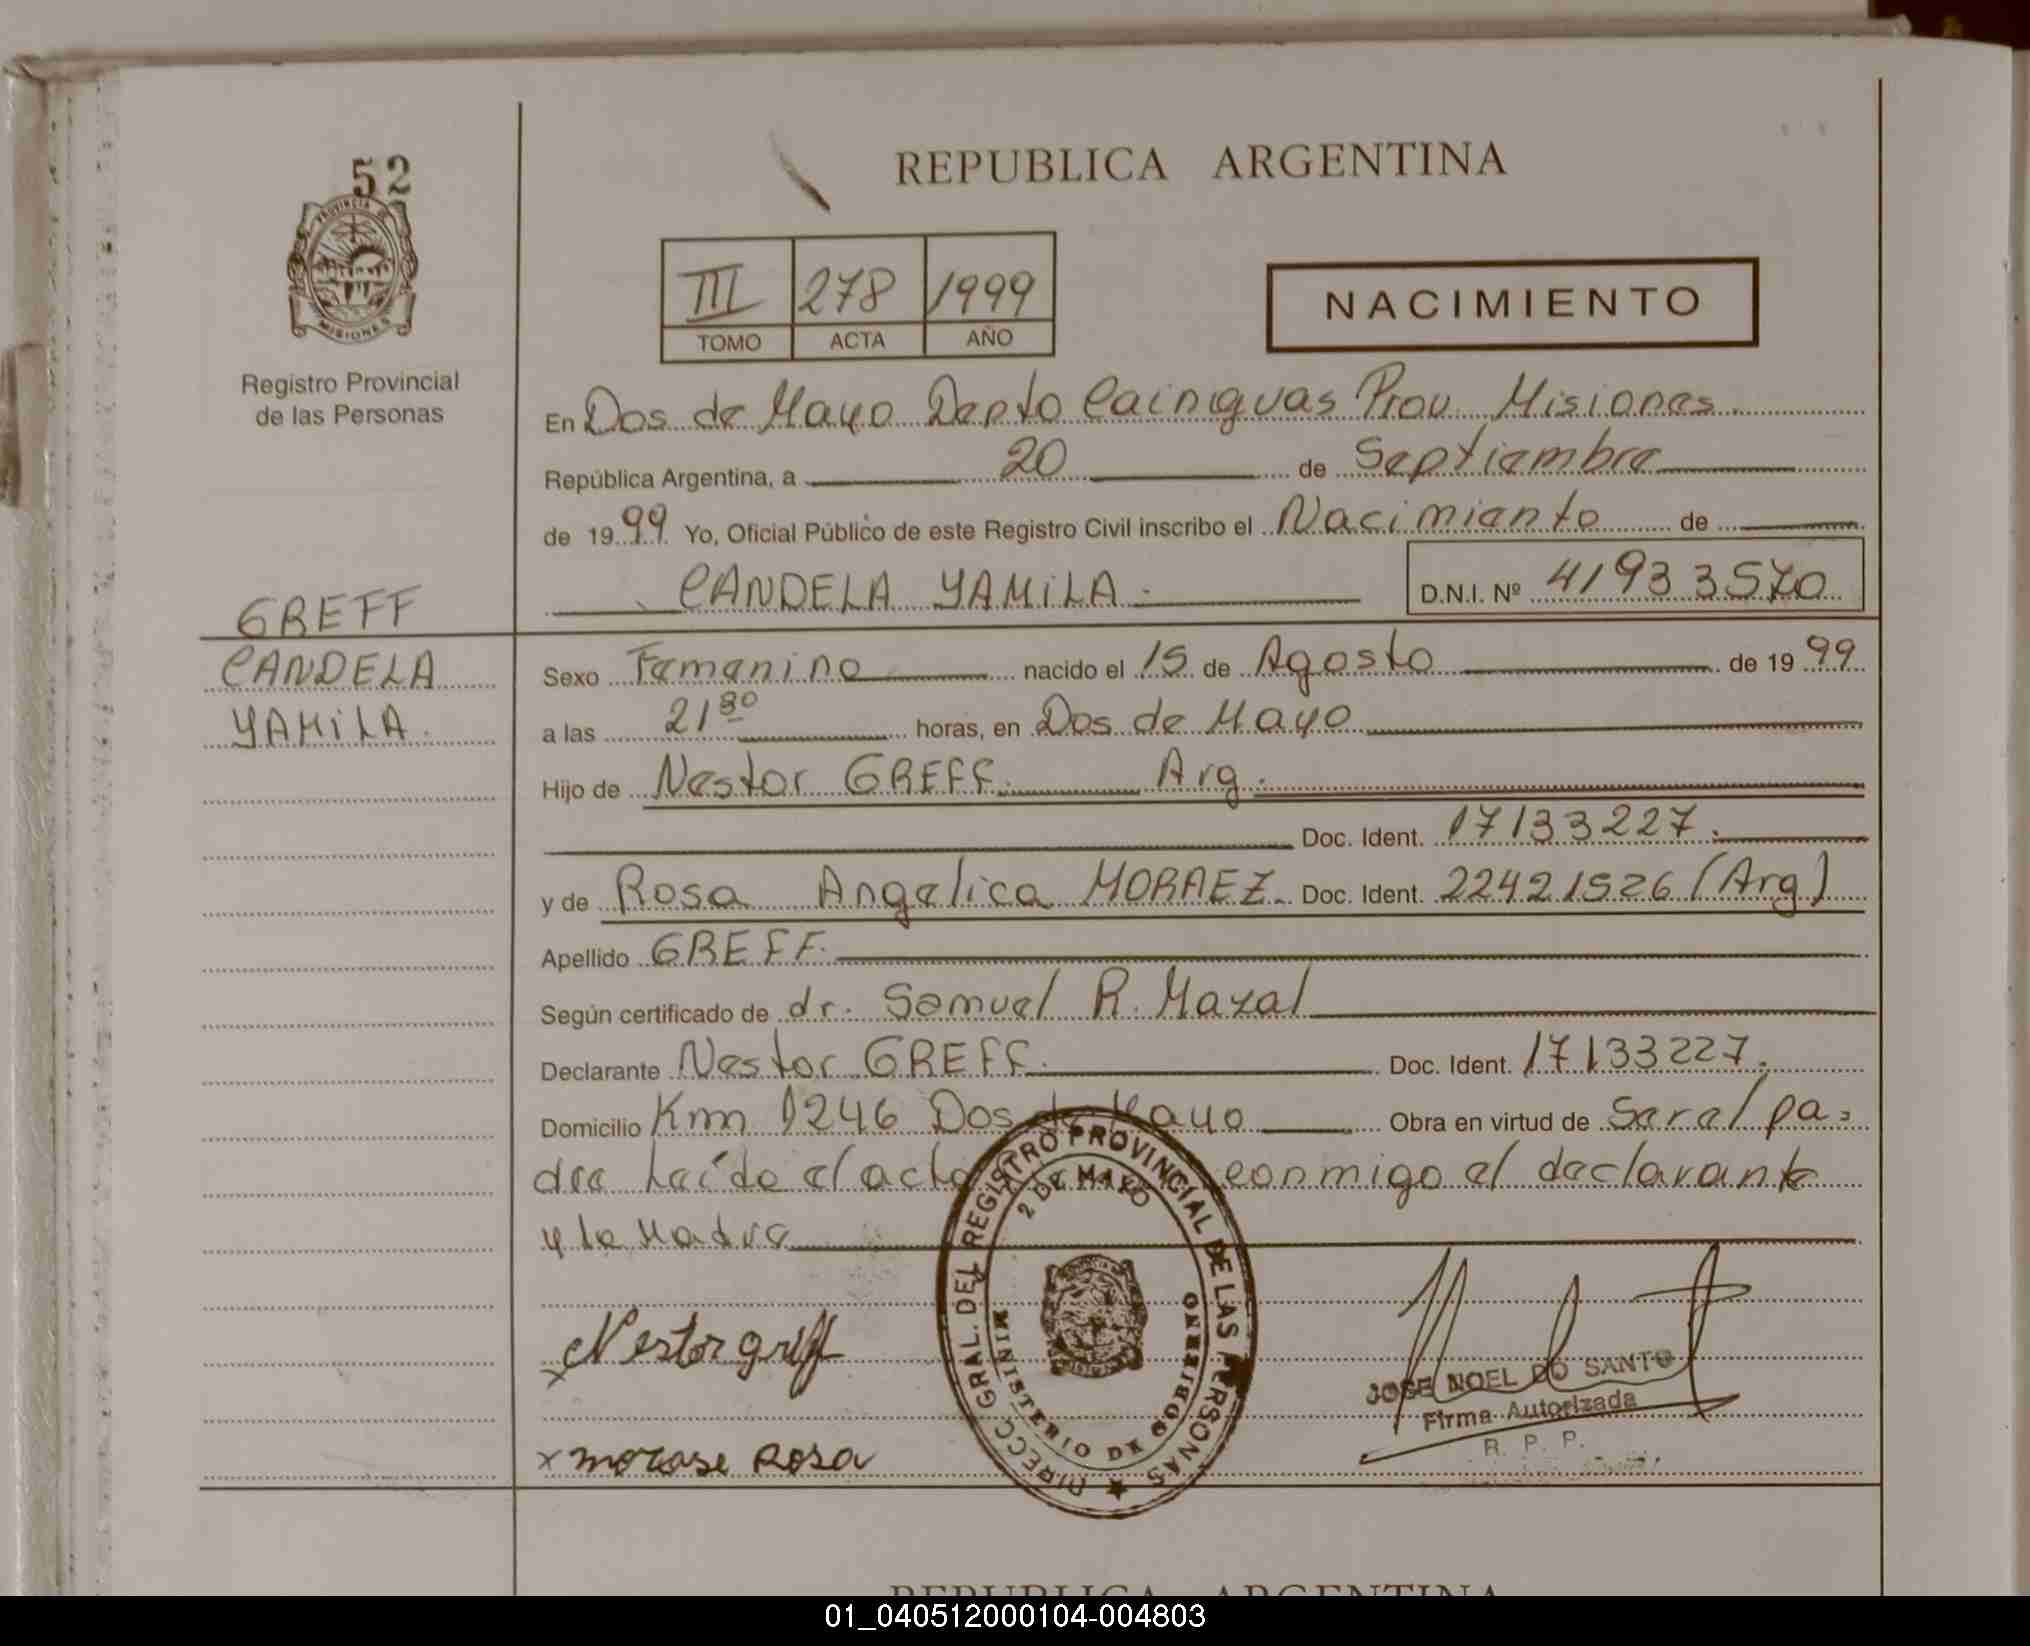 52
PROVINCIA DE
MISIONES
Registro Provincial
de las Personas
GREFF
CANDELA
YAMILA.
REPUBLICA ARGENTINA
III 278 1999
TOMO ACTA AÑO
NACIMIENTO
En Dos de Mayo Depto Cainguas Prov. Misiones
República Argentina, a 20 de Septiembre
de 1999 Yo, Oficial Público de este Registro Civil inscribo el Nacimiento de
CANDELA YAMILA.
D.N.I. Nº 41933570
Sexo Femenino nacido el 15 de Agosto de 1999
a las 21 30 horas, en Dos de Mayo
Hijo de Nestor GREFF. Arg.
Doc. Ident. 17133227.
y de Rosa Angelica MORAEZ. Doc. Ident. 22421526 (Arg)
Apellido GREFF.
Según certificado de dr. Samuel R. Mazal
Declarante Nestor GREFF. Doc. Ident. 17133227.
Domicilio Km 1246 Dos de Mayo Obra en virtud de Ser el pa=
dre Leída el acta conmigo el declarante
y la Madre
DIRECC GRAL. DEL REGISTRO PROVINCIAL DE LAS PERSONAS
2 DE MAYO
MINISTERIO DE GOBIERNO
x Nestor greff
x morase Rosa
JOSE NOEL DO SANTO
Firma Autorizada
R. P. P.
REPUBLICA ARGENTINA
01_040512000104-004803